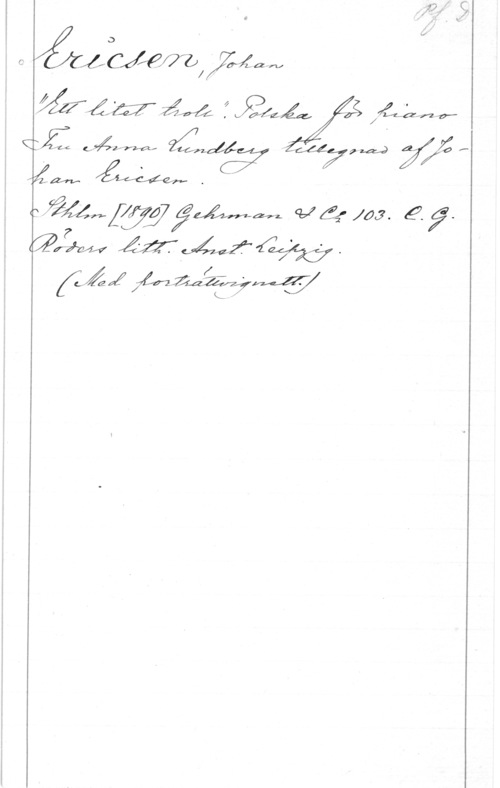 Pf. 2
Ericsen, Johan
"Ett litet troll". Polska för piano
Fru Anna Lundberg tillegnad af Jo-
han Ericsen.
Sthlm [1890] Gehrman & Co 103. C. G.
Röders lith. Anst. Leipzig.
(Med porträttvignett.)